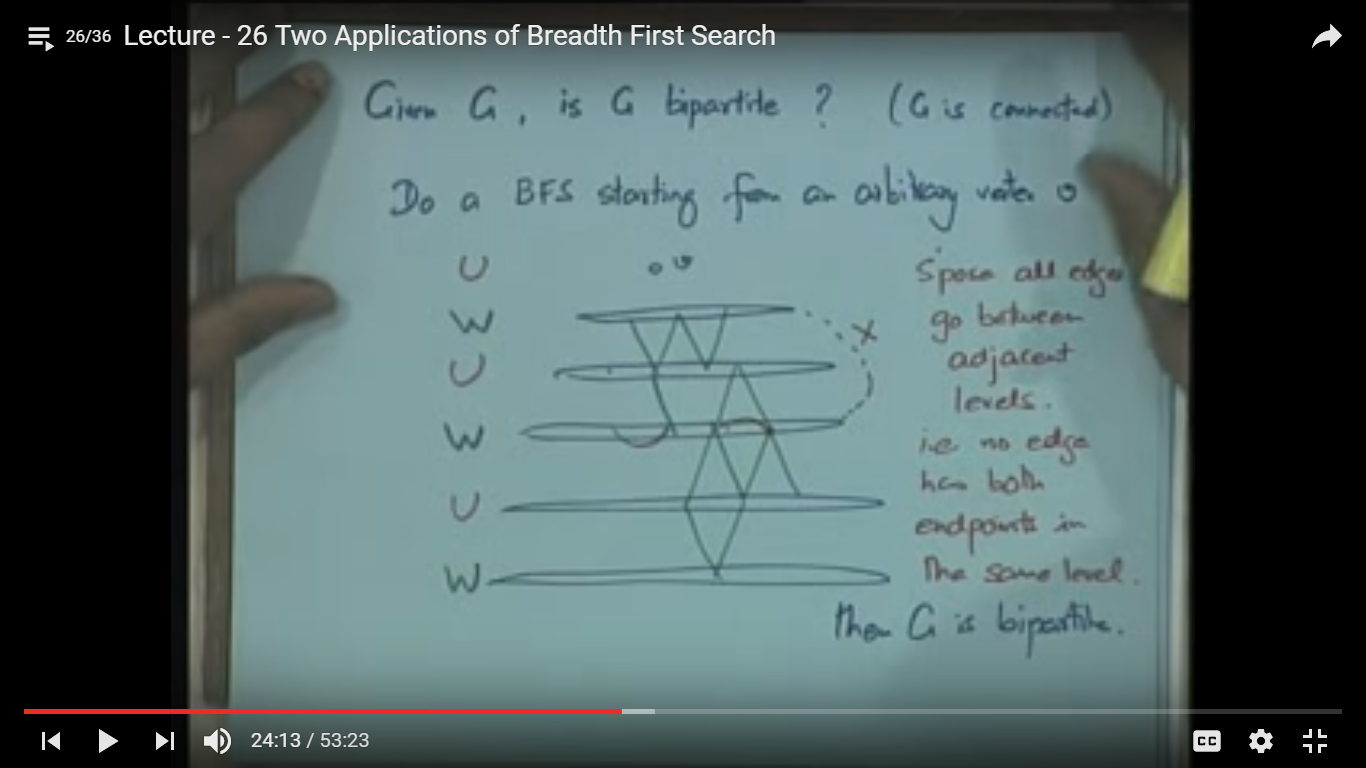 26/36 Lecture - 26 Two Applications of Breadth First Search
Given G, is G bipartite ? (G is connected)
Do a BFS starting from an arbitrary vertex v
U
v
W
U
W
U
W
x
S'pose all edges
go between
adjacent
levels.
i.e no edge
has both
endpoints in
the same level.
then G is bipartite.
24:13 / 53:23
CC